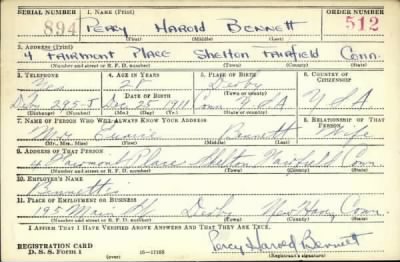 SERIAL NUMBER 1. NAME (Print) ORDER NUMBER
894 PERCY HAROLD BENNETT 512
(First) (Middle) (Last)
2. ADDRESS (Print)
4 FAIRMONT PLACE SHELTON FAIRFIELD CONN.
(Number and street or R. F. D. number) (Town) (County) (State)
3. TELEPHONE 4. AGE IN YEARS 5. PLACE OF BIRTH 6. COUNTRY OF CITIZENSHIP
Derby
DATE OF BIRTH
Derby 295-5 Dec 25 1911 Conn U S A U S A
(Exchange) (Number) (Mo.) (Day) (Yr.) (State or country)
7. NAME OF PERSON WHO WILL ALWAYS KNOW YOUR ADDRESS 8. RELATIONSHIP OF THAT PERSON
Mrs Eunice Bennett Wife
(Mr., Mrs., Miss) (First) (Middle) (Last)
9. ADDRESS OF THAT PERSON
4 Fairmont Place Shelton Fairfield Conn.
(Number and street or R. F. D. number) (Town) (County) (State)
10. EMPLOYER'S NAME
Bennett's
11. PLACE OF EMPLOYMENT OR BUSINESS
195 Main St. Derby New Haven Conn.
(Number and street or R. F. D. number) (Town) (County) (State)
I AFFIRM THAT I HAVE VERIFIED ABOVE ANSWERS AND THAT THEY ARE TRUE.
REGISTRATION CARD
D. S. S. FORM 1 (over) 16-17105 Percy Harold Bennett